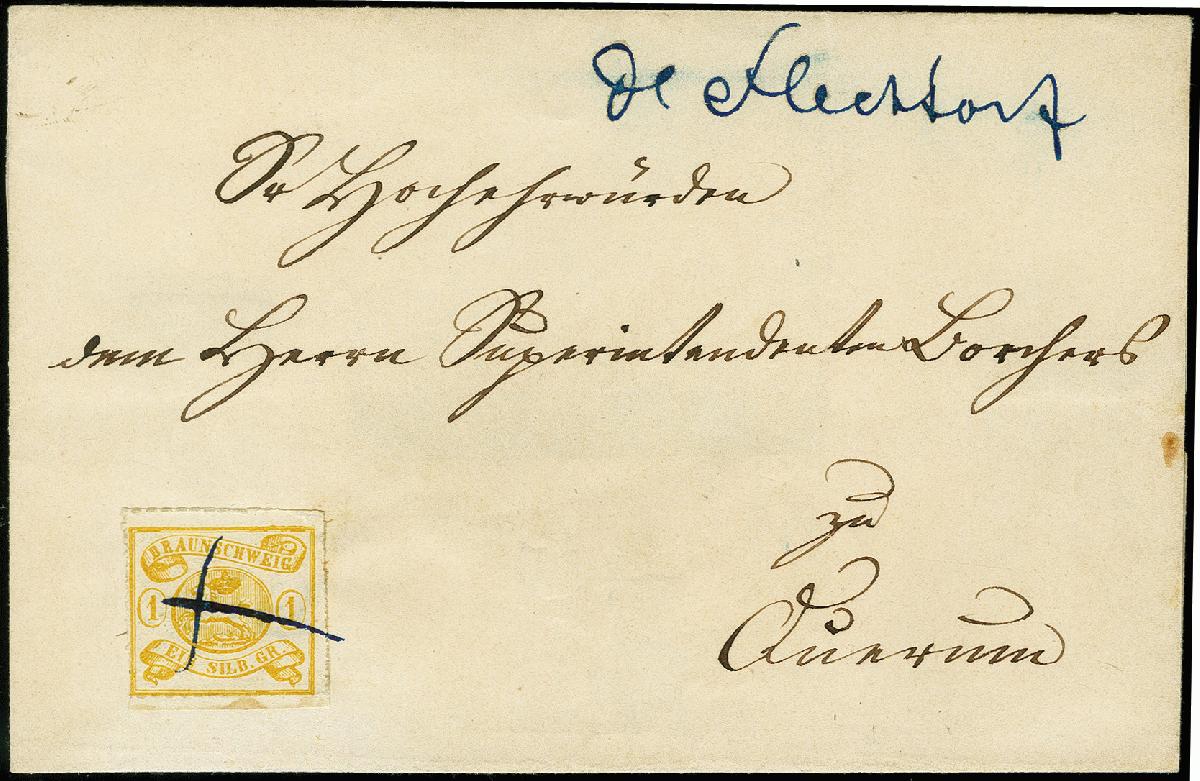 de Flechtorf
Sr Hochehrwürden
dem Herrn Superintendenten Borchers
zu
Querum
BRAUNSCHWEIG
1 1
EIN SILB. GR.